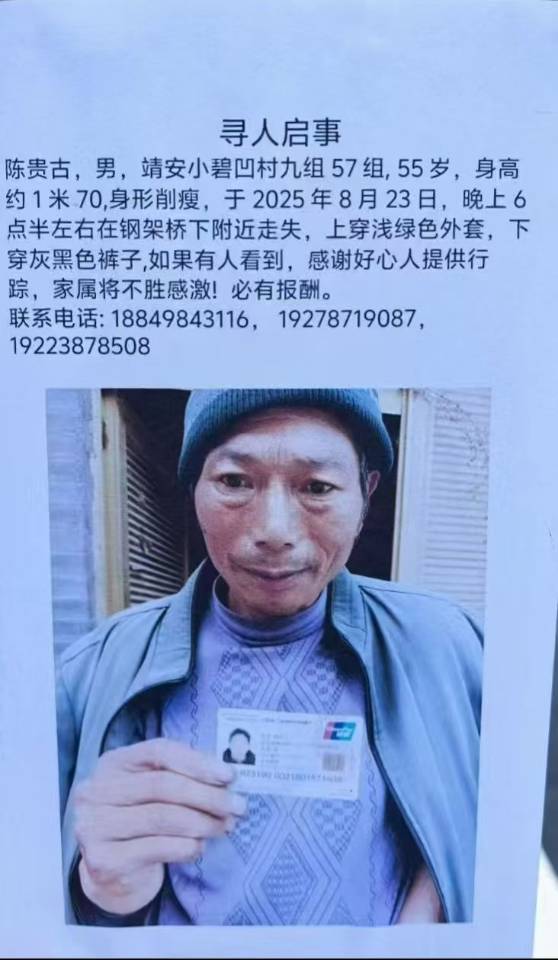 寻人启事
陈贵古，男，靖安小碧凹村九组 57 组, 55 岁，身高
约 1 米 70,身形削瘦，于 2025 年 8 月 23 日，晚上 6
点半左右在钢架桥下附近走失，上穿浅绿色外套，下
穿灰黑色裤子,如果有人看到，感谢好心人提供行
踪，家属将不胜感激! 必有报酬。
联系电话: 18849843116， 19278719087，
19223878508